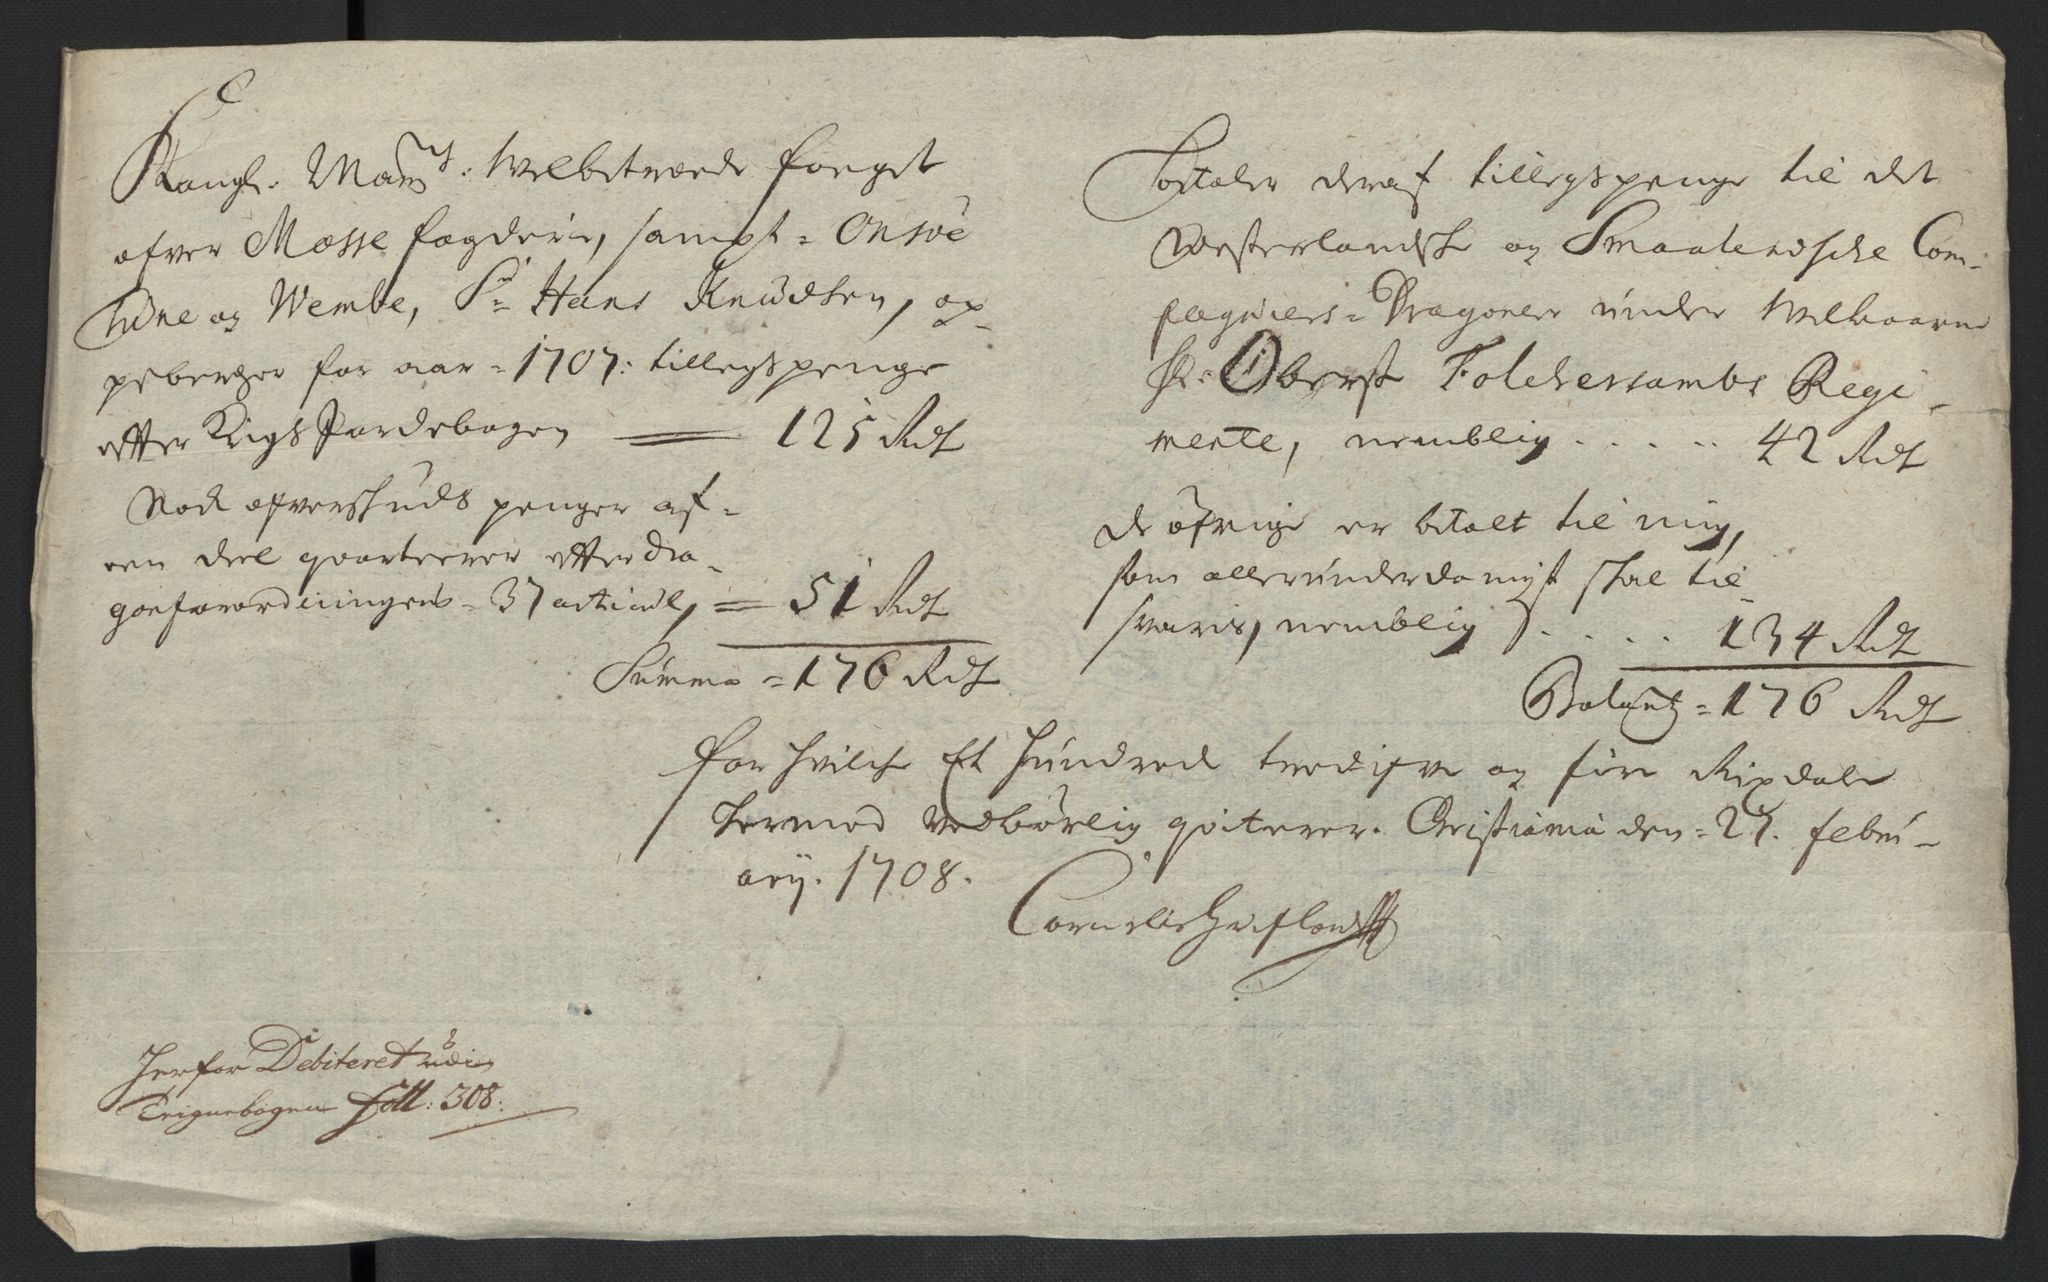 Kongl. May.ts Welbetroede Fogget
ofver Mosse fogderie, sampt Onsöe
Tune og Wembe, Sr Hans Knudsen, op-
peberger for aar 1707: tillegspenge
efter Krigs Jordebogen = 125 Rdr
Nock ofverskuds penger af
een deel qvarteerer efter dra-
gonforordningens 37 articul, = 51 Rdr
Summa = 176 Rdr
betaler deraf tillegspenge til det
Westerlandske og Smaalendsche Com-
pagniers Dragoner under Welbaarne
Hr. Oberst Folchersambs Regi-
mente, nemblig ..... 42 Rdr
de öfrige er betalt til mig,
som allerunderdanigst skal til-
svaris, nemblig .... 134 Rdr
Balantz = 176 Rdr
for hvilche Et hundrede tredifve og fire Rixdaler
hermed vedbørlig qviterer. Christiania den 27. febru-
arij. 1708.
Cornelis
Herfor Debiteret udi
Crignebogen Foll: 308: